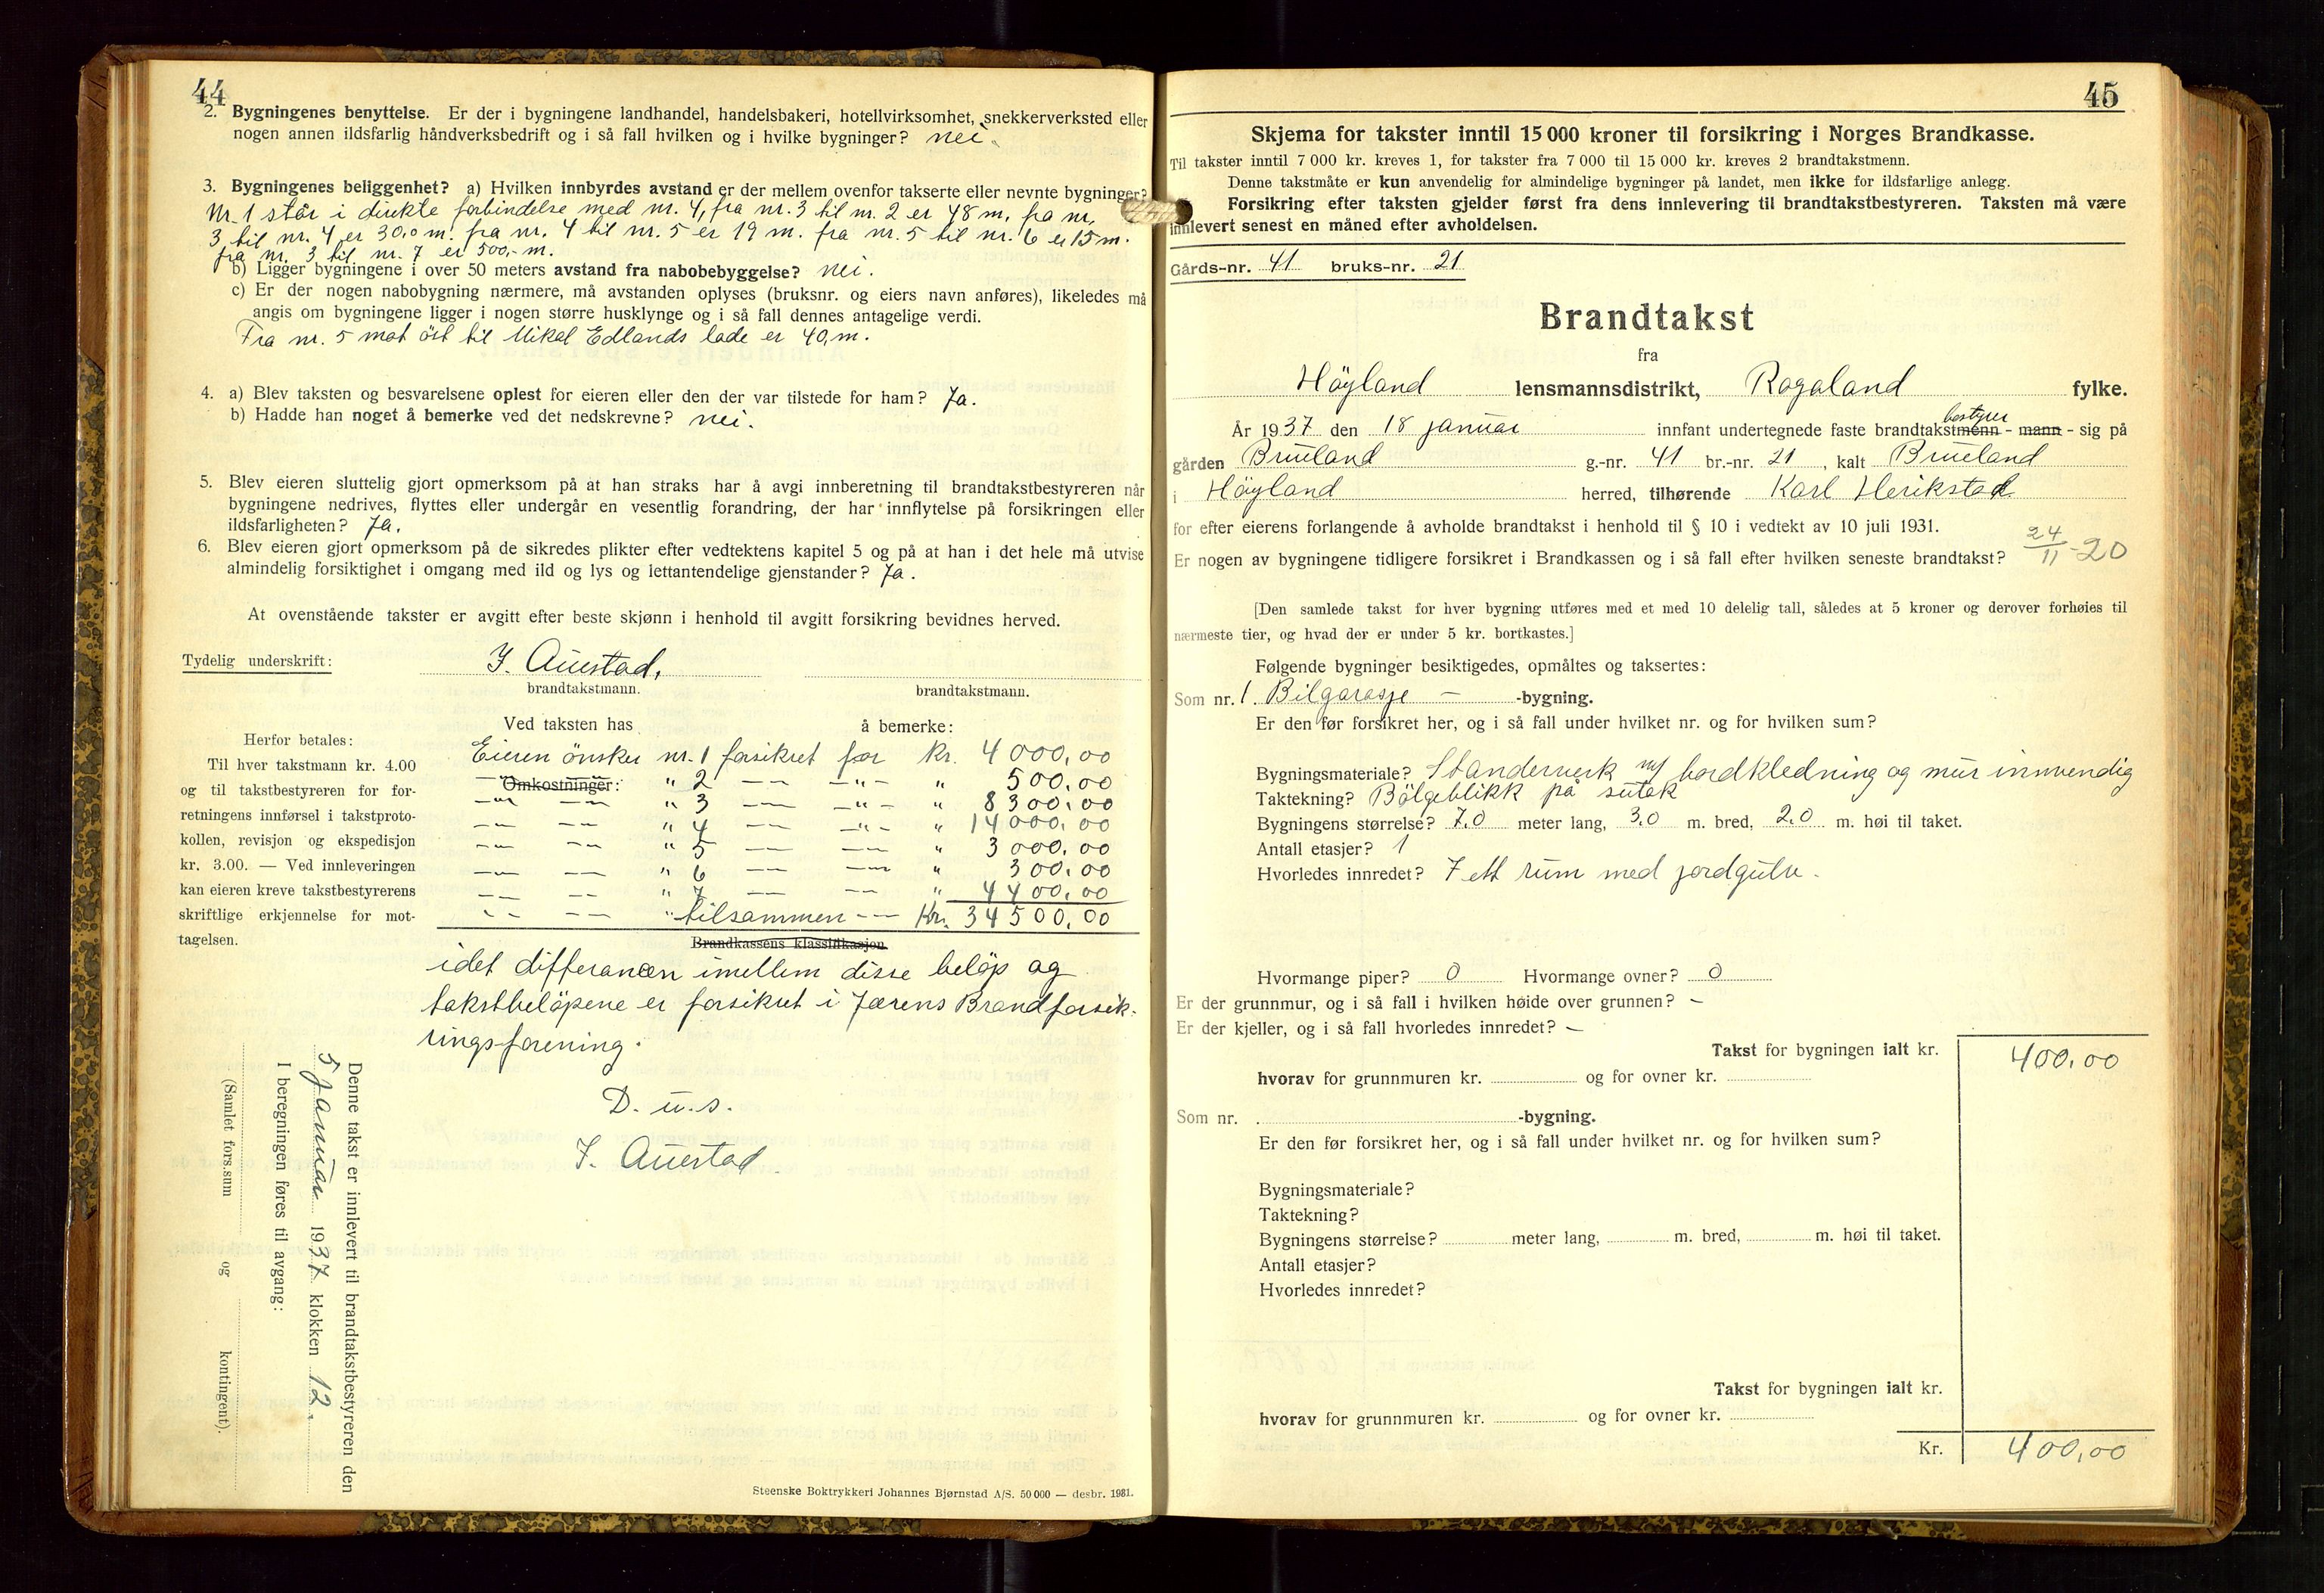 44
2. Bygningenes benyttelse. Er der i bygningene landhandel, handelsbakeri, hotellvirksomhet, snekkerverksted eller
nogen annen ildsfarlig håndverksbedrift og i så fall hvilken og i hvilke bygninger? nei.
3. Bygningenes beliggenhet? a) Hvilken innbyrdes avstand er der mellem ovenfor takserte eller nevnte bygninger?
Nr. 1 står i direkte forbindelse med nr. 4, fra nr. 3 til nr. 2 er 48 m, fra nr.
3 til nr. 4 er 30,0 m. fra nr. 4 til nr. 5 er 19 m. fra nr. 5 til nr. 6 er 15 m.
fra nr. 3 til nr. 7 er 500,- m.
b) Ligger bygningene i over 50 meters avstand fra nabobebyggelse? nei.
c) Er der nogen nabobygning nærmere, må avstanden oplyses (bruksnr. og eiers navn anføres), likeledes må
angis om bygningene ligger i nogen større husklynge og i så fall dennes antagelige verdi.
Fra nr. 5 mot öst til Mikal Edlands lade er 40,m.
4. a) Blev taksten og besvarelsene oplest for eieren eller den der var tilstede for ham? Ja.
b) Hadde han noget å bemerke ved det nedskrevne? nei.
5. Blev eieren sluttelig gjort opmerksom på at han straks har å avgi innberetning til brandtakstbestyreren når
bygningene nedrives, flyttes eller undergår en vesentlig forandring, der har innflytelse på forsikringen eller
ildsfarligheten? Ja.
6. Blev eieren gjort opmerksom på de sikredes plikter efter vedtektens kapitel 5 og på at han i det hele må utvise
almindelig forsiktighet i omgang med ild og lys og lettantendelige gjenstander? Ja.
At ovenstående takster er avgitt efter beste skjønn i henhold til avgitt forsikring bevidnes herved.
Tydelig underskrift: J. Auestad,
brandtakstmann. brandtakstmann.
Ved taksten has å bemerke:
Herfor betales:
Til hver takstmann kr. 4.00
og til takstbestyreren for for-
retningens innførsel i takstproto-
kollen, revisjon og ekspedisjon
kr. 3.00. — Ved innleveringen
kan eieren kreve takstbestyrerens
skriftlige erkjennelse for mot-
tagelsen.
Eieren önsker nr. 1 forsikret for kr. 4000,00
Omkostninger: " 2 — — — " — " 500,00
— " — — — " 3 — — — " — " 8300,00
— — — — " 4 — — — " — " 14000,00
— — — — " 5 — — — — " 3000,00
— — — — " 6 — — — — " 300,00
— — — — " 7 — — — — " 4400,00
- - — — " tilsammen - — Kr. 34500,00
Brandkassens klassifikasjon
idet differansen imellem disse belöp og
takstbelöpene er forsikret i Jærens Brandforsik-
ringsforening.
D. u. s.
J. Auestad
Denne takst er innlevert til brandtakstbestyreren den
5 januar 1937 klokken 12.
I beregningen føres til avgang:
(Samlet fors.sum og kontingent).
Steenske Boktrykkeri Johannes Bjørnstad A/S. 50 000 — desbr. 1931.
45
Skjema for takster inntil 15 000 kroner til forsikring i Norges Brandkasse.
Til takster inntil 7 000 kr. kreves 1, for takster fra 7 000 til 15 000 kr. kreves 2 brandtakstmenn.
Denne takstmåte er kun anvendelig for almindelige bygninger på landet, men ikke for ildsfarlige anlegg.
Forsikring efter taksten gjelder først fra dens innlevering til brandtakstbestyreren. Taksten må være
innlevert senest en måned efter avholdelsen.
Gårds-nr. 41 bruks-nr. 21
Brandtakst
fra
Höyland lensmannsdistrikt, Rogaland fylke.
bestyrer
År 1937 den 18 januar innfant undertegnede faste brandtakstmenn - mann - sig på
gården Brueland g.-nr. 41 br.-nr. 21, kalt Brueland
i Höyland herred, tilhørende Karl Herikstad
for efter eierens forlangende å avholde brandtakst i henhold til § 10 i vedtekt av 10 juli 1931.
Er nogen av bygningene tidligere forsikret i Brandkassen og i så fall efter hvilken seneste brandtakst? 24/11-20
[Den samlede takst for hver bygning utføres med et med 10 delelig tall, således at 5 kroner og derover forhøies til
nærmeste tier, og hvad der er under 5 kr. bortkastes.]
Følgende bygninger besiktigedes, opmåltes og taksertes:
Som nr. 1. Bilgarasje — -bygning.
Er den før forsikret her, og i så fall under hvilket nr. og for hvilken sum?
Bygningsmateriale? Standerverk m/ bordkledning og mur innvendig
Taktekning? Bölgeblikk på sutak
Bygningens størrelse? 7.0 meter lang, 3.0 m. bred, 2.0 m. høi til taket.
Antall etasjer? 1
Hvorledes innredet? I ett rum med jordgulv.
Hvormange piper? 0 Hvormange ovner? 0
Er der grunnmur, og i så fall i hvilken høide over grunnen? —
Er der kjeller, og i så fall hvorledes innredet? —
Takst for bygningen ialt kr. 400,00
hvorav for grunnmuren kr. og for ovner kr.
Som nr. . -bygning.
Er den før forsikret her, og i så fall under hvilket nr. og for hvilken sum?
Bygningsmateriale?
Taktekning?
Bygningens størrelse? meter lang, m. bred, m. høi til taket.
Antall etasjer?
Hvorledes innredet?
Takst for bygningen ialt kr.
hvorav for grunnmuren kr. og for ovner kr.
Kr. 400,00